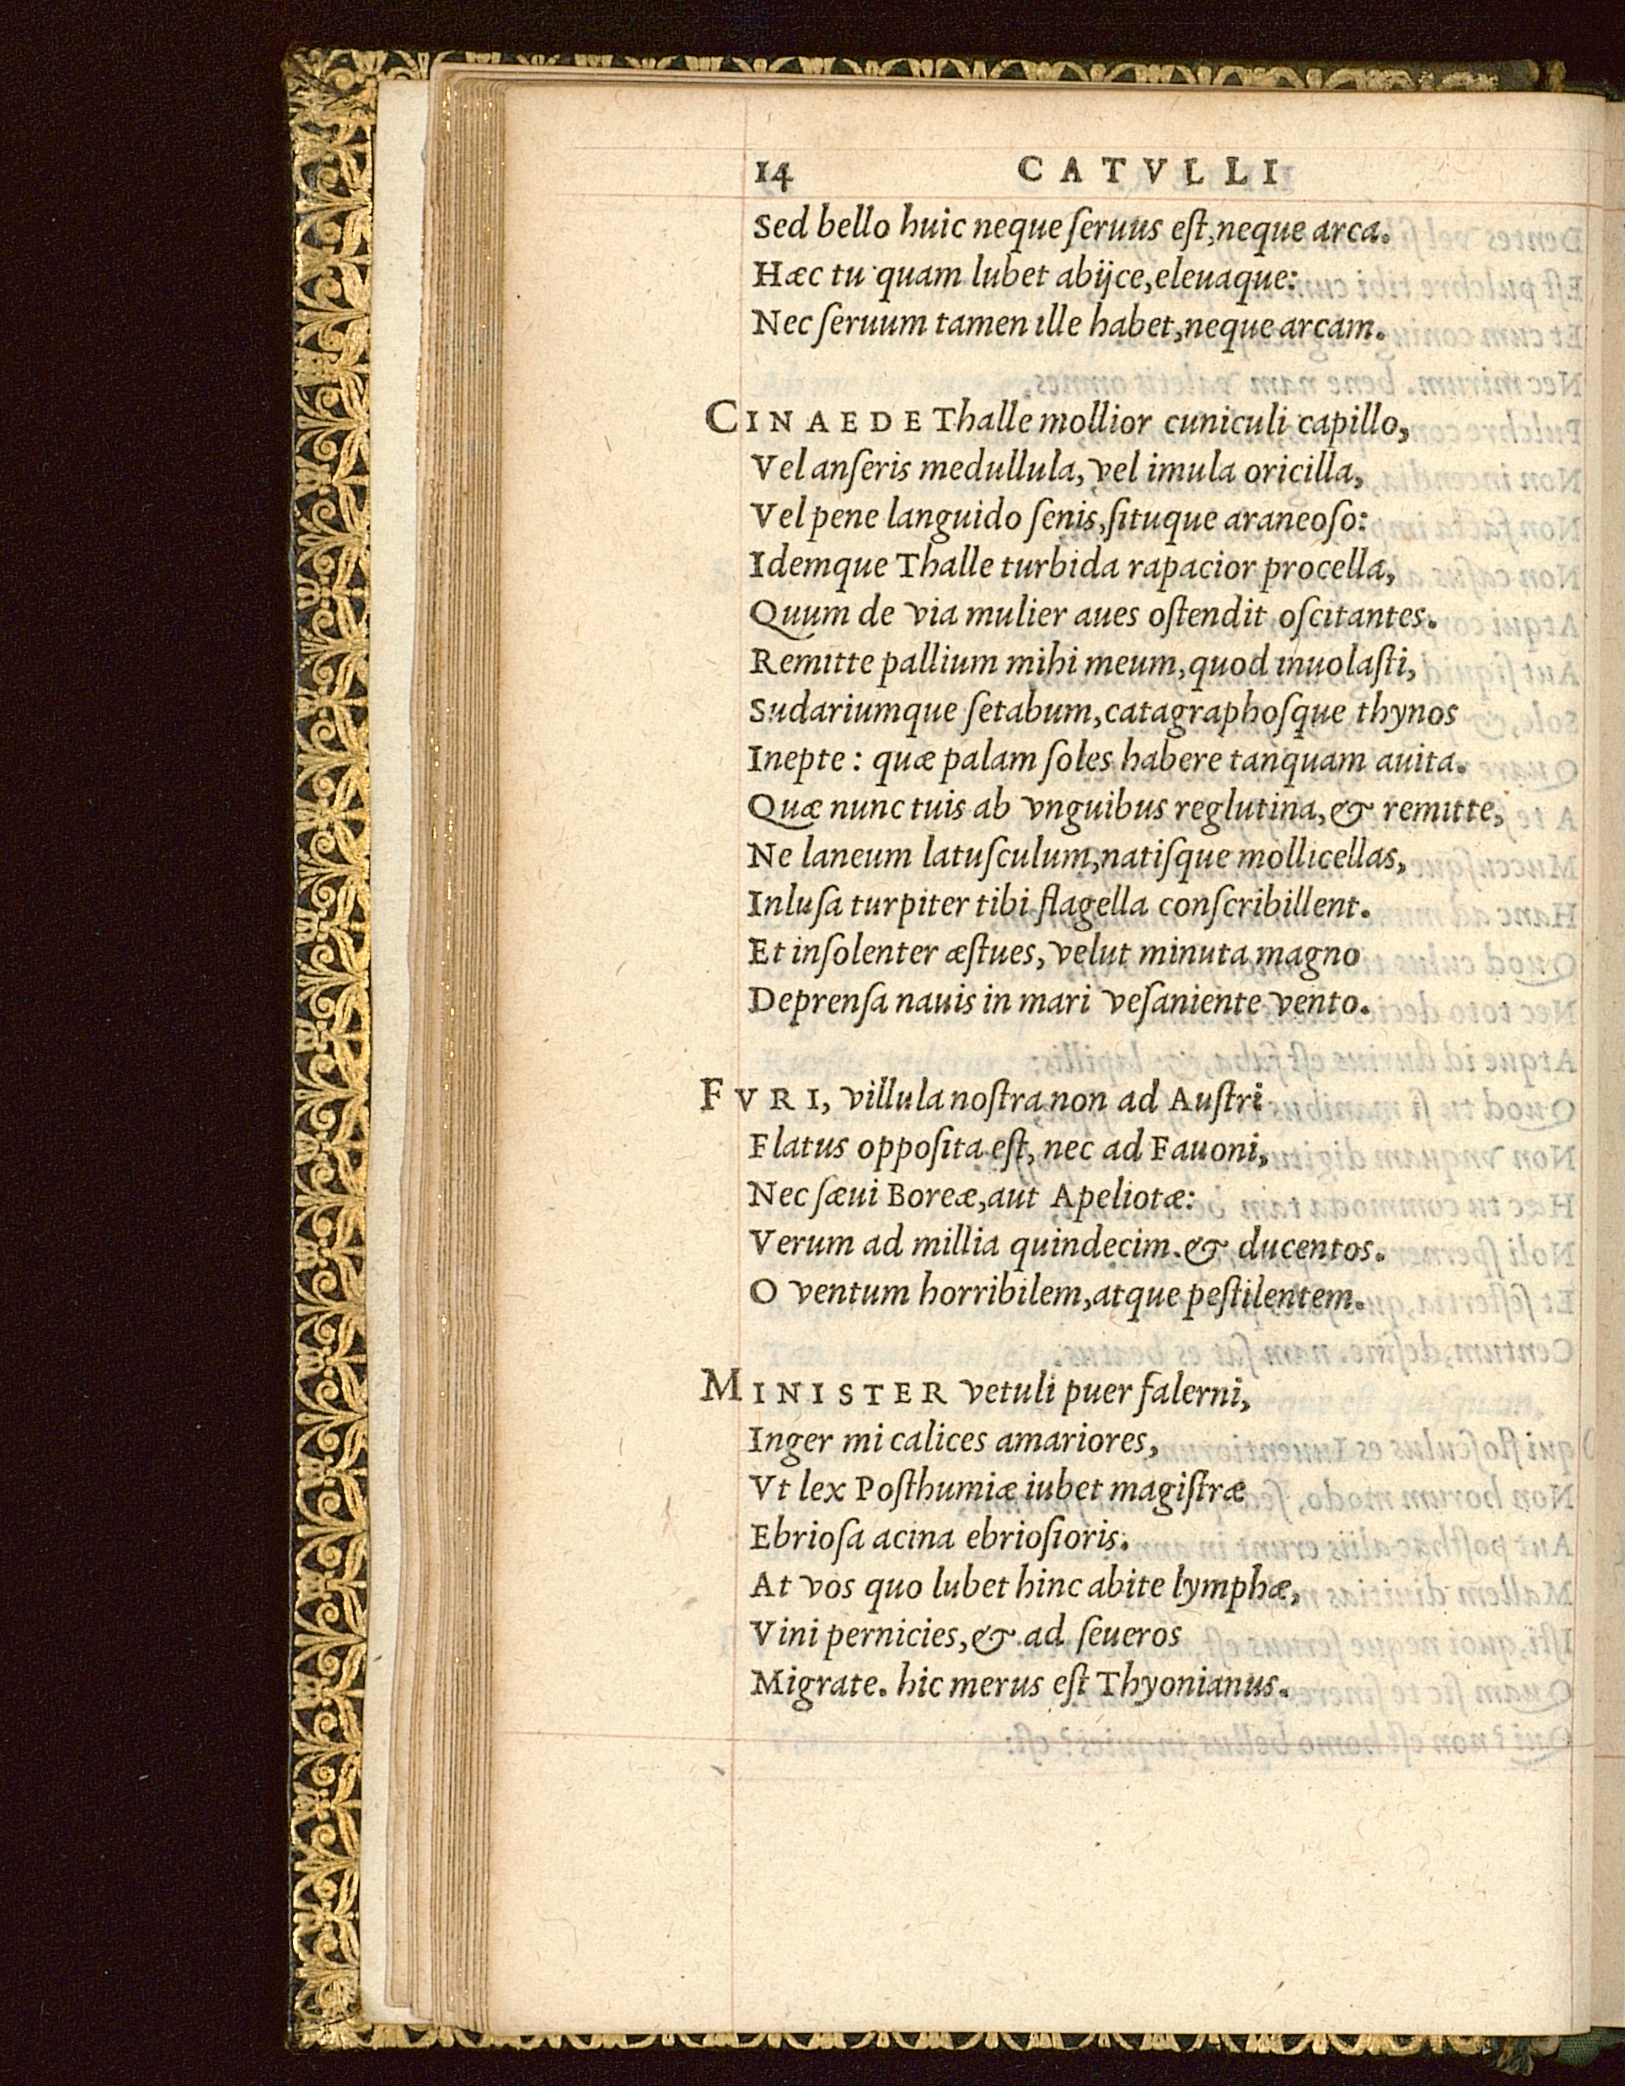 14 CATVLLI
Sed bello huic neque ſeruus eſt, neque arca.
Hæc tu quam lubet abijce, eleuaque:
Nec ſeruum tamen ille habet, neque arcam.
CINAEDE Thalle mollior cuniculi capillo,
Vel anſeris medullula, vel imula oricilla,
Vel pene languido ſenis, ſituque araneoſo:
Idemque Thalle turbida rapacior procella,
Quum de via mulier aues oſtendit oſcitantes.
Remitte pallium mihi meum, quod inuolaſti,
Sudariumque ſetabum, catagraphoſque thynos
Inepte: quæ palam ſoles habere tanquam auita.
Quæ nunc tuis ab vnguibus reglutina, & remitte,
Ne laneum latuſculum, natiſque mollicellas,
Inluſa turpiter tibi flagella conſcribillent.
Et inſolenter æſtues, velut minuta magno
Deprenſa nauis in mari veſaniente vento.
FVRI, villula noſtra non ad Auſtri
Flatus oppoſita eſt, nec ad Fauoni,
Nec ſæui Boreæ, aut Apeliotæ:
Verum ad millia quindecim & ducentos.
O ventum horribilem, atque peſtilentem.
MINISTER vetuli puer falerni,
Inger mi calices amariores,
Vt lex Poſthumiæ iubet magiſtræ
Ebrioſa acina ebrioſioris.
At vos quo lubet hinc abite lymphæ,
Vini pernicies, & ad ſeueros
Migrate. hic merus eſt Thyonianus.